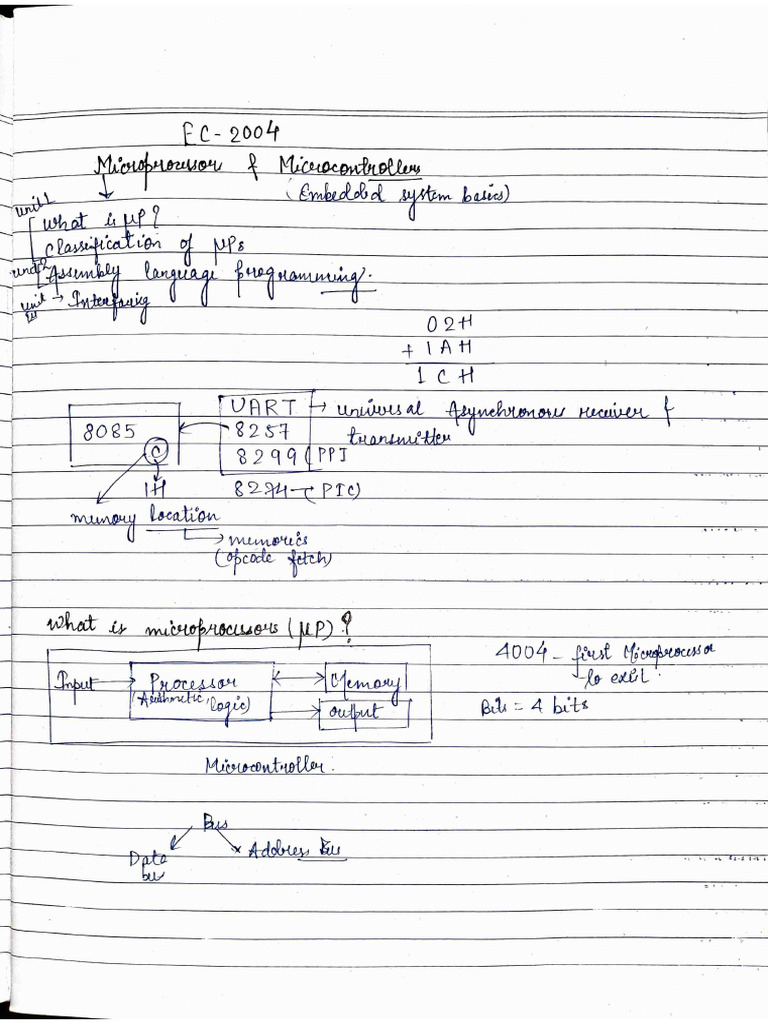 EC-2004
Microprocessor & Microcontrollers
(Embedded system basics)
unit 1
What is μP?
Classification of μPs
unit 2
Assembly language programming.
unit → Interfacing
02H
+ 1AH
1CH
UART → universal Asynchronous receiver &
transmitter
8085
8257
8299 (PPI
C
1H
8274 → (PIC)
memory location
→ memories
(opcode fetch)
What is microprocessors (μP)?
4004 - first Microprocessor
to exit.
Input
Processor
(Arithmetic, logic)
Memory
output
Bits = 4 bits
Microcontroller.
Bus
Data
bus
Address Bus